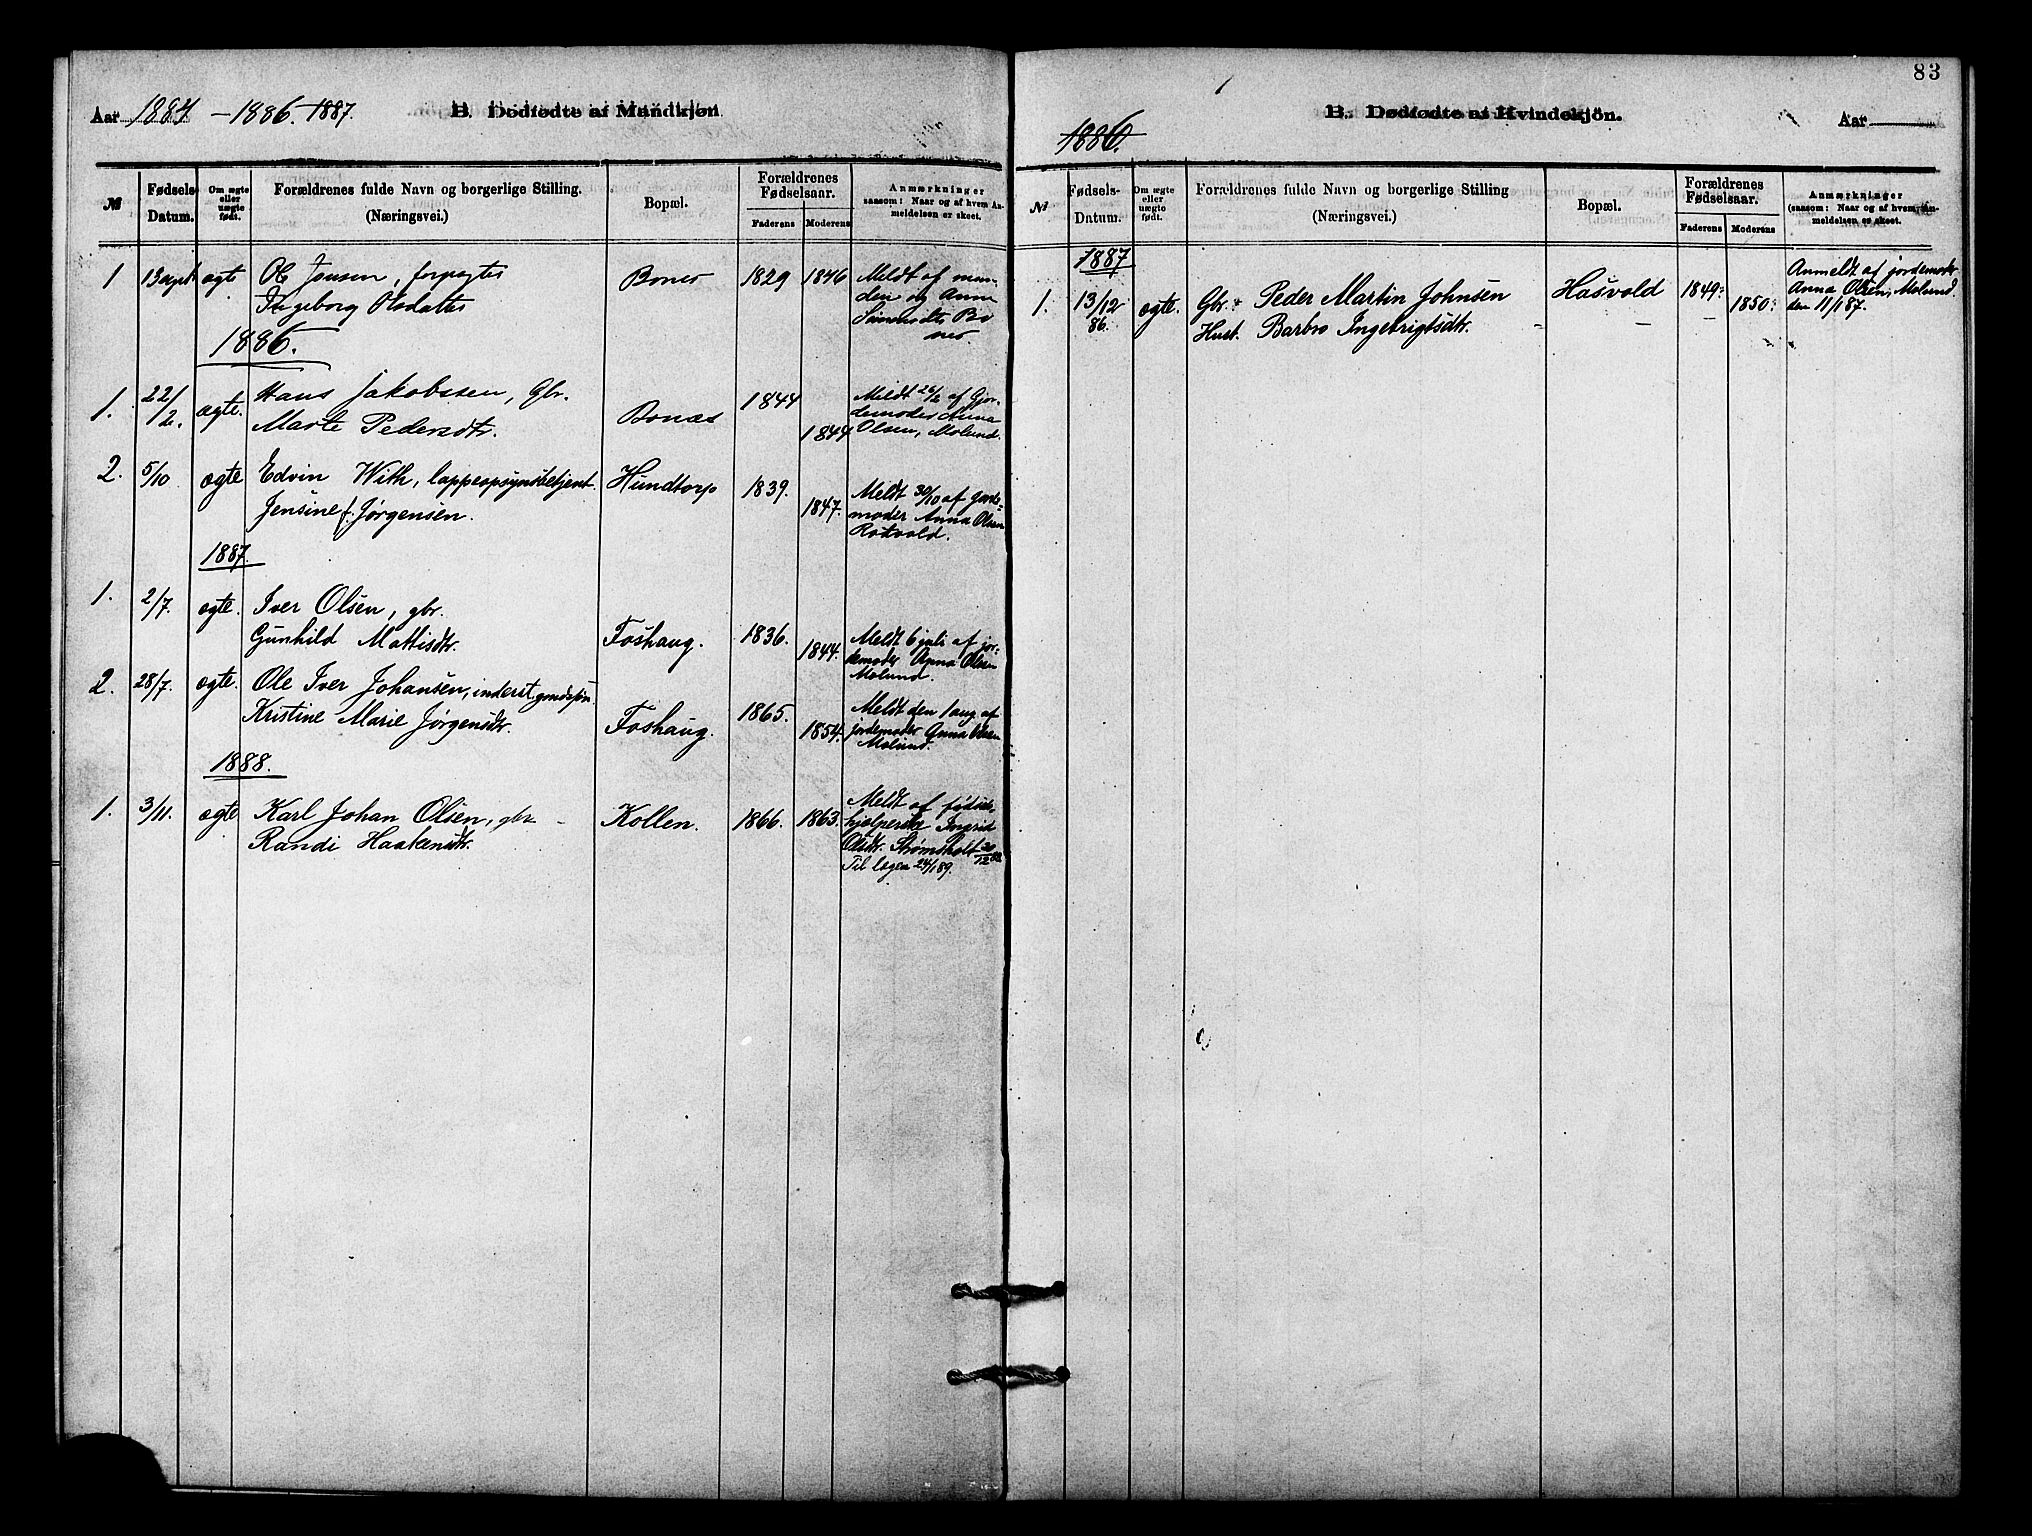 Aar 1884 - 1886. 1887. B. Dødfødte af Mandkjøn
№ Fødsels Datum. Om ægte eller uægte født. Forældrenes fulde Navn og borgerlige Stilling. (Næringsvei.) Bopæl. Forældrenes Fødselsaar. Faderens Moderens Anmærkninger saasom: Naar og af hvem Anmeldelsen er skeet.
1 13 ægte Ole Jensen, forpagter Bones 1829 1846 Meldt af man-
Ingeborg Olsdatter den og Anne
1886.
1. 22/2. ægte. Hans Jakobssen, Gbr. Bonæs 1844 Meldt 26/2 af Gjor-
Marte Pedersdtr. 1844 demoder Anna
Olsen, Molund.
2. 5/10 ægte Edvin With, lappeopsynsbetjent. Hundtorp 1839. Meldt 30/10 af jorde-
Jensine f. Jørgensen. 1847. moder Anna Olsen
1887.
1. 2/7. ægte. Iver Olsen, gbr.
Gunhild Mattisdtr. Foshaug. 1836. 1844. Meldt 6 juli af jor-
demoder Anna Olsen
Molund.
2. 28/7. ægte. Ole Iver Johansen, inderst,
Kristine Marie Jørgensdtr. Foshaug. 1865. 1854. Meldt den 1 aug af
jordemoder Anna Olsen
Molund.
1888.
1. 3/11. ægte Karl Johan Olsen, gbr. Kollen. 1866. 1863. Meldt af fødsels-
Randi Haakensdtr. hjælperske Ingrid
Olsdtr. Strømsholt 20/12 88.
Til lægen 24/1 89.
83
B. Dødfødte af Kvindekjön. Aar
1886.
№ Fødsels- Datum. Om ægte eller uægte født. Forældrenes fulde Navn og borgerlige Stilling (Næringsvei.) Bopæl. Forældrenes Fødselsaar. Faderens Moderens Anmærkninger (saasom: Naar og af hvem Anmeldelsen er skeet.
1887
1. 13/12 86. ægte. Gbr. Peder Martin Johnsen Hasvold 1849. Anmeldt af jordemodr
Hust. Barbro Ingebrigtsdtr. 1850. Anna Olsen, Molund.
den 11/1 87.